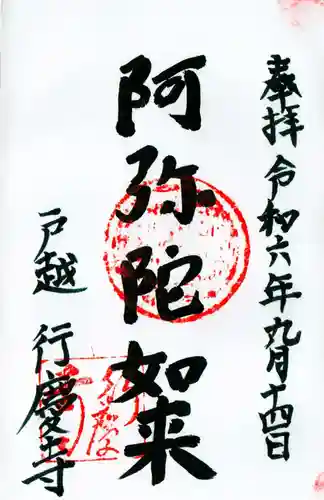 奉拝 令和六年九月十四日
阿弥陀如来
戸越 行慶寺